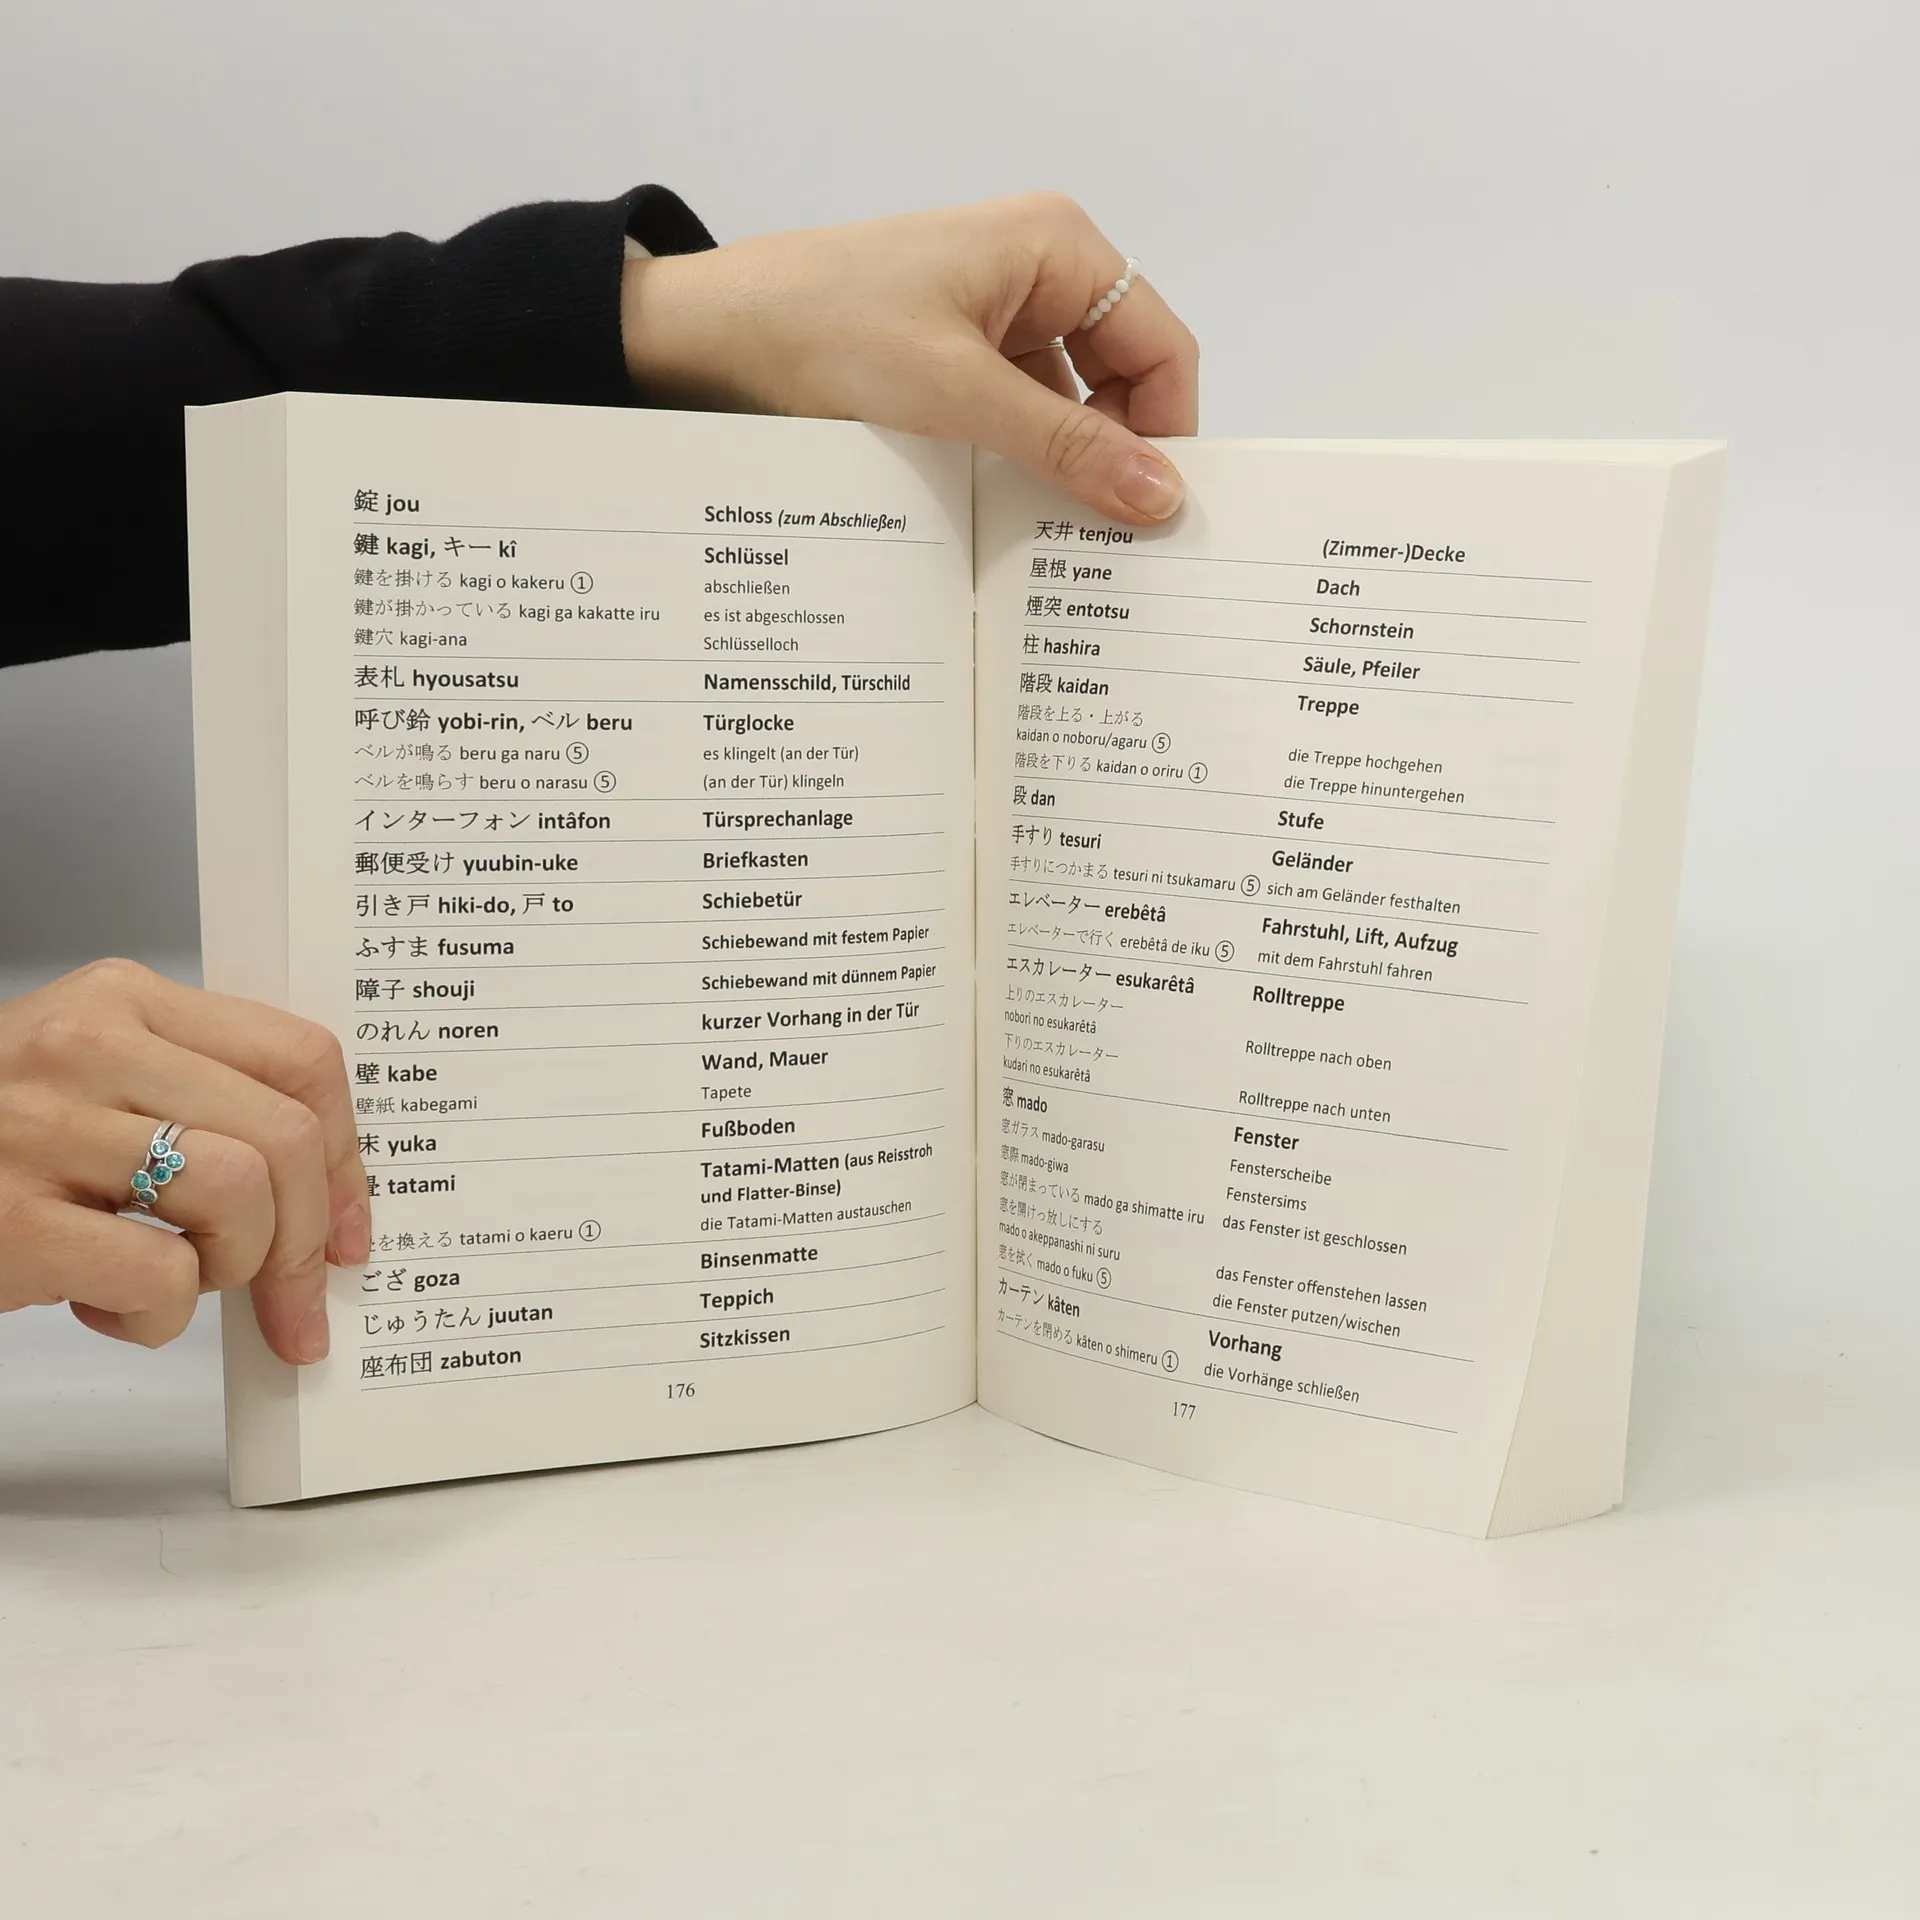 錠 jou Schloss (zum Abschließen)
鍵 kagi, キー kî Schlüssel
鍵を掛ける kagi o kakeru ① abschließen
鍵が掛かっている kagi ga kakatte iru es ist abgeschlossen
鍵穴 kagi-ana Schlüsselloch
表札 hyousatsu Namensschild, Türschild
呼び鈴 yobi-rin, ベル beru Türglocke
ベルが鳴る beru ga naru ⑤ es klingelt (an der Tür)
ベルを鳴らす beru o narasu ⑤ (an der Tür) klingeln
インターフォン intâfon Türsprechanlage
郵便受け yuubin-uke Briefkasten
引き戸 hiki-do, 戸 to Schiebetür
ふすま fusuma Schiebewand mit festem Papier
障子 shouji Schiebewand mit dünnem Papier
のれん noren kurzer Vorhang in der Tür
壁 kabe Wand, Mauer
壁紙 kabegami Tapete
床 yuka Fußboden
畳 tatami Tatami-Matten (aus Reisstroh
und Flatter-Binse)
を換える tatami o kaeru ① die Tatami-Matten austauschen
ござ goza Binsenmatte
じゅうたん juutan Teppich
座布団 zabuton Sitzkissen
176
天井 tenjou (Zimmer-)Decke
屋根 yane Dach
煙突 entotsu Schornstein
柱 hashira Säule, Pfeiler
階段 kaidan Treppe
階段を上る・上がる
kaidan o noboru/agaru ⑤ die Treppe hochgehen
階段を下りる kaidan o oriru ① die Treppe hinuntergehen
段 dan Stufe
手すり tesuri Geländer
手すりにつかまる tesuri ni tsukamaru ⑤ sich am Geländer festhalten
エレベーター erebêtâ Fahrstuhl, Lift, Aufzug
エレベーターで行く erebêtâ de iku ⑤ mit dem Fahrstuhl fahren
エスカレーター esukarêtâ Rolltreppe
上りのエスカレーター
nobori no esukarêtâ Rolltreppe nach oben
下りのエスカレーター
kudari no esukarêtâ Rolltreppe nach unten
窓 mado Fenster
窓ガラス mado-garasu Fensterscheibe
窓際 mado-giwa Fenstersims
窓が閉まっている mado ga shimatte iru das Fenster ist geschlossen
窓を開けっ放しにする
mado o akeppanashi ni suru das Fenster offenstehen lassen
窓を拭く mado o fuku ⑤ die Fenster putzen/wischen
カーテン kâten Vorhang
カーテンを閉める kâten o shimeru ① die Vorhänge schließen
177